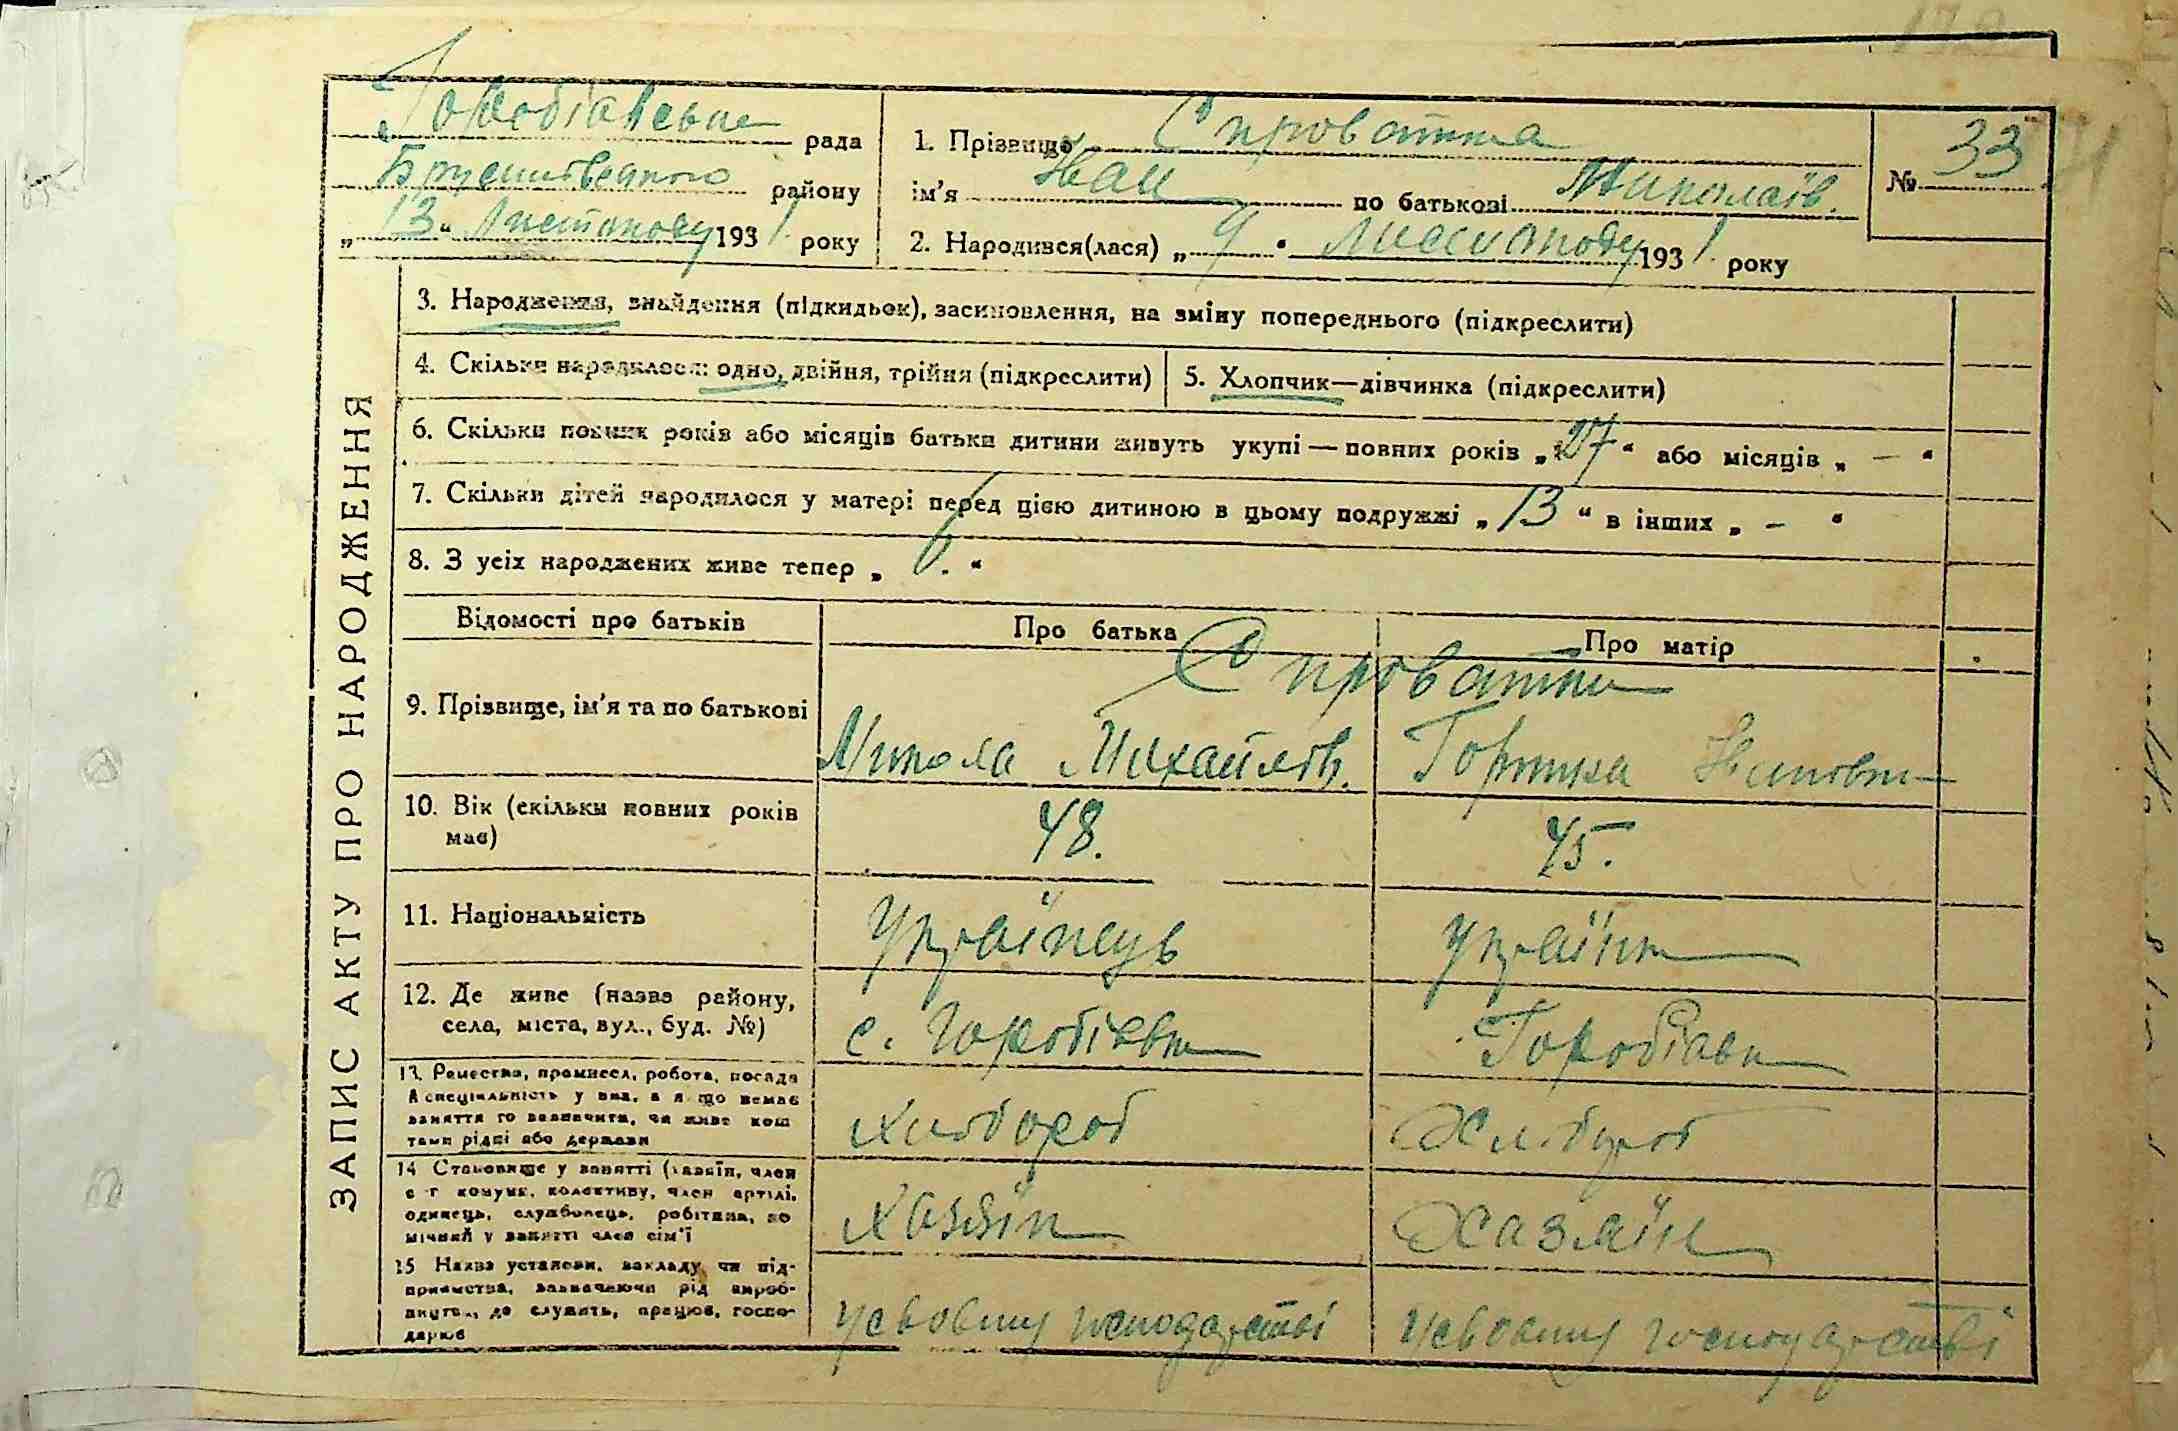 Горобіївська рада
Брусилівського району
„13“ Листопаду 1931. року
1. Прізвище Сыроватка
ім'я Іван по батькові Миколаїв.
№ 33
2. Народився(лася) „9“ Листопаду 1931. року
ЗАПИС АКТУ ПРО НАРОДЖЕННЯ
3. Народження, знайдення (підкидьок), засиновлення, на зміну попереднього (підкреслити)
4. Скільки народилося: одно, двійня, трійня (підкреслити)
5. Хлопчик—дівчинка (підкреслити)
6. Скільки повних років або місяців батьки дитини живуть укупі — повних років „27“ або місяців „ — “
7. Скільки дітей народилося у матері перед цією дитиною в цьому подружжі „13“ в інших „ – “
8. З усіх народжених живе тепер „6.“
Відомості про батьків
Про батька
Про матір
9. Прізвище, ім'я та по батькові
Микола Михайлів.
Іванівна
10. Вік (скільки повних років
має)
48.
45.
11. Національність
Українець
Українка
12. Де живе (назва району,
села, міста, вул., буд. №)
с. Горобіївка
Горобіївка
13. Ремество, промисел, робота, посада
й спеціяльність у них, а якщо немає
заняття то зазначити, чи живе кош
тами рідні або держави
Хлібороб
Хлібороб
14 Становище у занятті (хазяїн, член
с-г комуни, колективу, член артілі,
одинець, службовець, робітник, по
мічний у занятті член сім'ї
Хазяїн
Хазяїн
15 Назва установи, закладу чи під-
приємства, зазначаючи рід вироб-
ництва, де служить, працює, госпо-
дарює
У своєму господарстві
У своєму господарстві